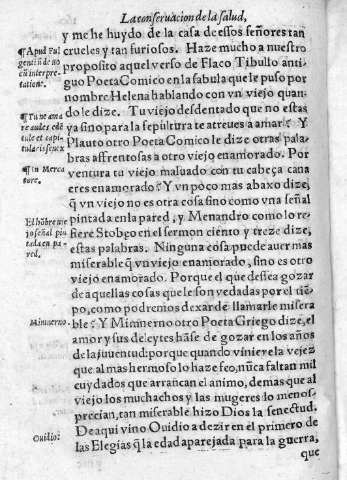 La conseruacion de la salud,
y me he huydo de la casa de essos señores tan
crueles y tan furiosos. Haze mucho a nuestro
proposito aquel verso de Flaco Tibullo anti-
guo Poeta Comico en la fabula que le puso por
nombre Helena hablando con vn viejo quan-
do le dize. Tu viejo desdentado que no estas
ya sino para la sepultura te atreues a amar? Y
Plauto otro Poeta Comico le dize otras pala-
bras affrentosas a otro viejo enamorado. Por
ventura tu viejo maluado con tu cabeça cana
eres enamorado? Y vn poco mas abaxo dize,
q̃ vn viejo no es otra cosa sino como vna señal
pintada en la pared, y Menandro como lo re-
fiere Stobeo en el sermon ciento y treze dize,
estas palabras. Ninguna cosa puede auer mas
miserable q̃ vn viejo enamorado, sino es otro
viejo enamorado. Porque el que dessea gozar
de aquellas cosas que le son vedadas por el tiẽ-
po, como podremos dexar de llamarle misera
ble? Y Mimnerno otro Poeta Griego dize, el
amor y sus deleytes hãse de gozar en los años
de la juuentud: porque quando viniere la vejez
que al mas hermoso lo haze feo, nũca faltan mil
cuydados que arrancan el animo, demas que al
viejo los muchachos y las mugeres lo menos-
precian, tan miserable hizo Dios la senectud.
De aqui vino Ouidio a dezir en el primero de
las Elegias q̃ la edad aparejada para la guerra,
que
¶ Apud Ful
gentiũ de no
cũ interpre-
tatione.
¶ Tu ne ama
re audes edẽ
tule et capu
laris senex
¶ In Merca
tore.
El hõbre vie
jo señal pin
tada en pa-
red.
Mimnerno.
Ouidio.